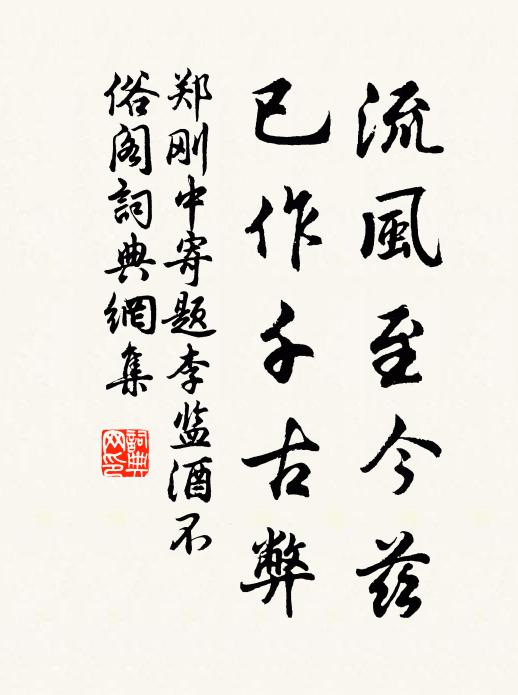 流風至今兹
已作千古弊
郑刚中寄题李监酒不
俗阁詞典網集
詞典
网印